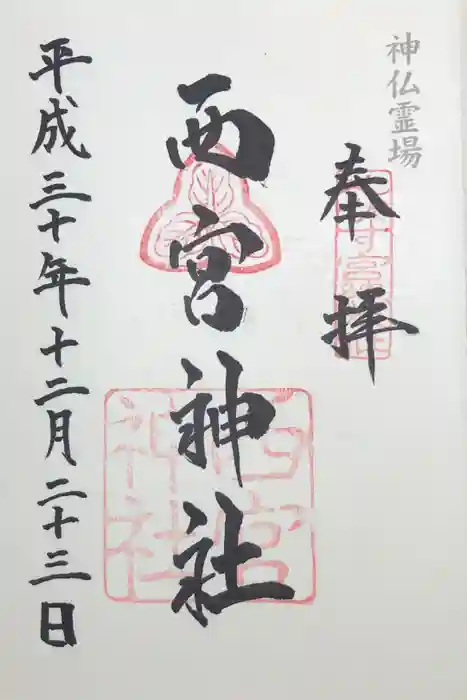 神仏霊場
奉拝
西宮神社
平成三十年十二月二十三日
西宮
神社